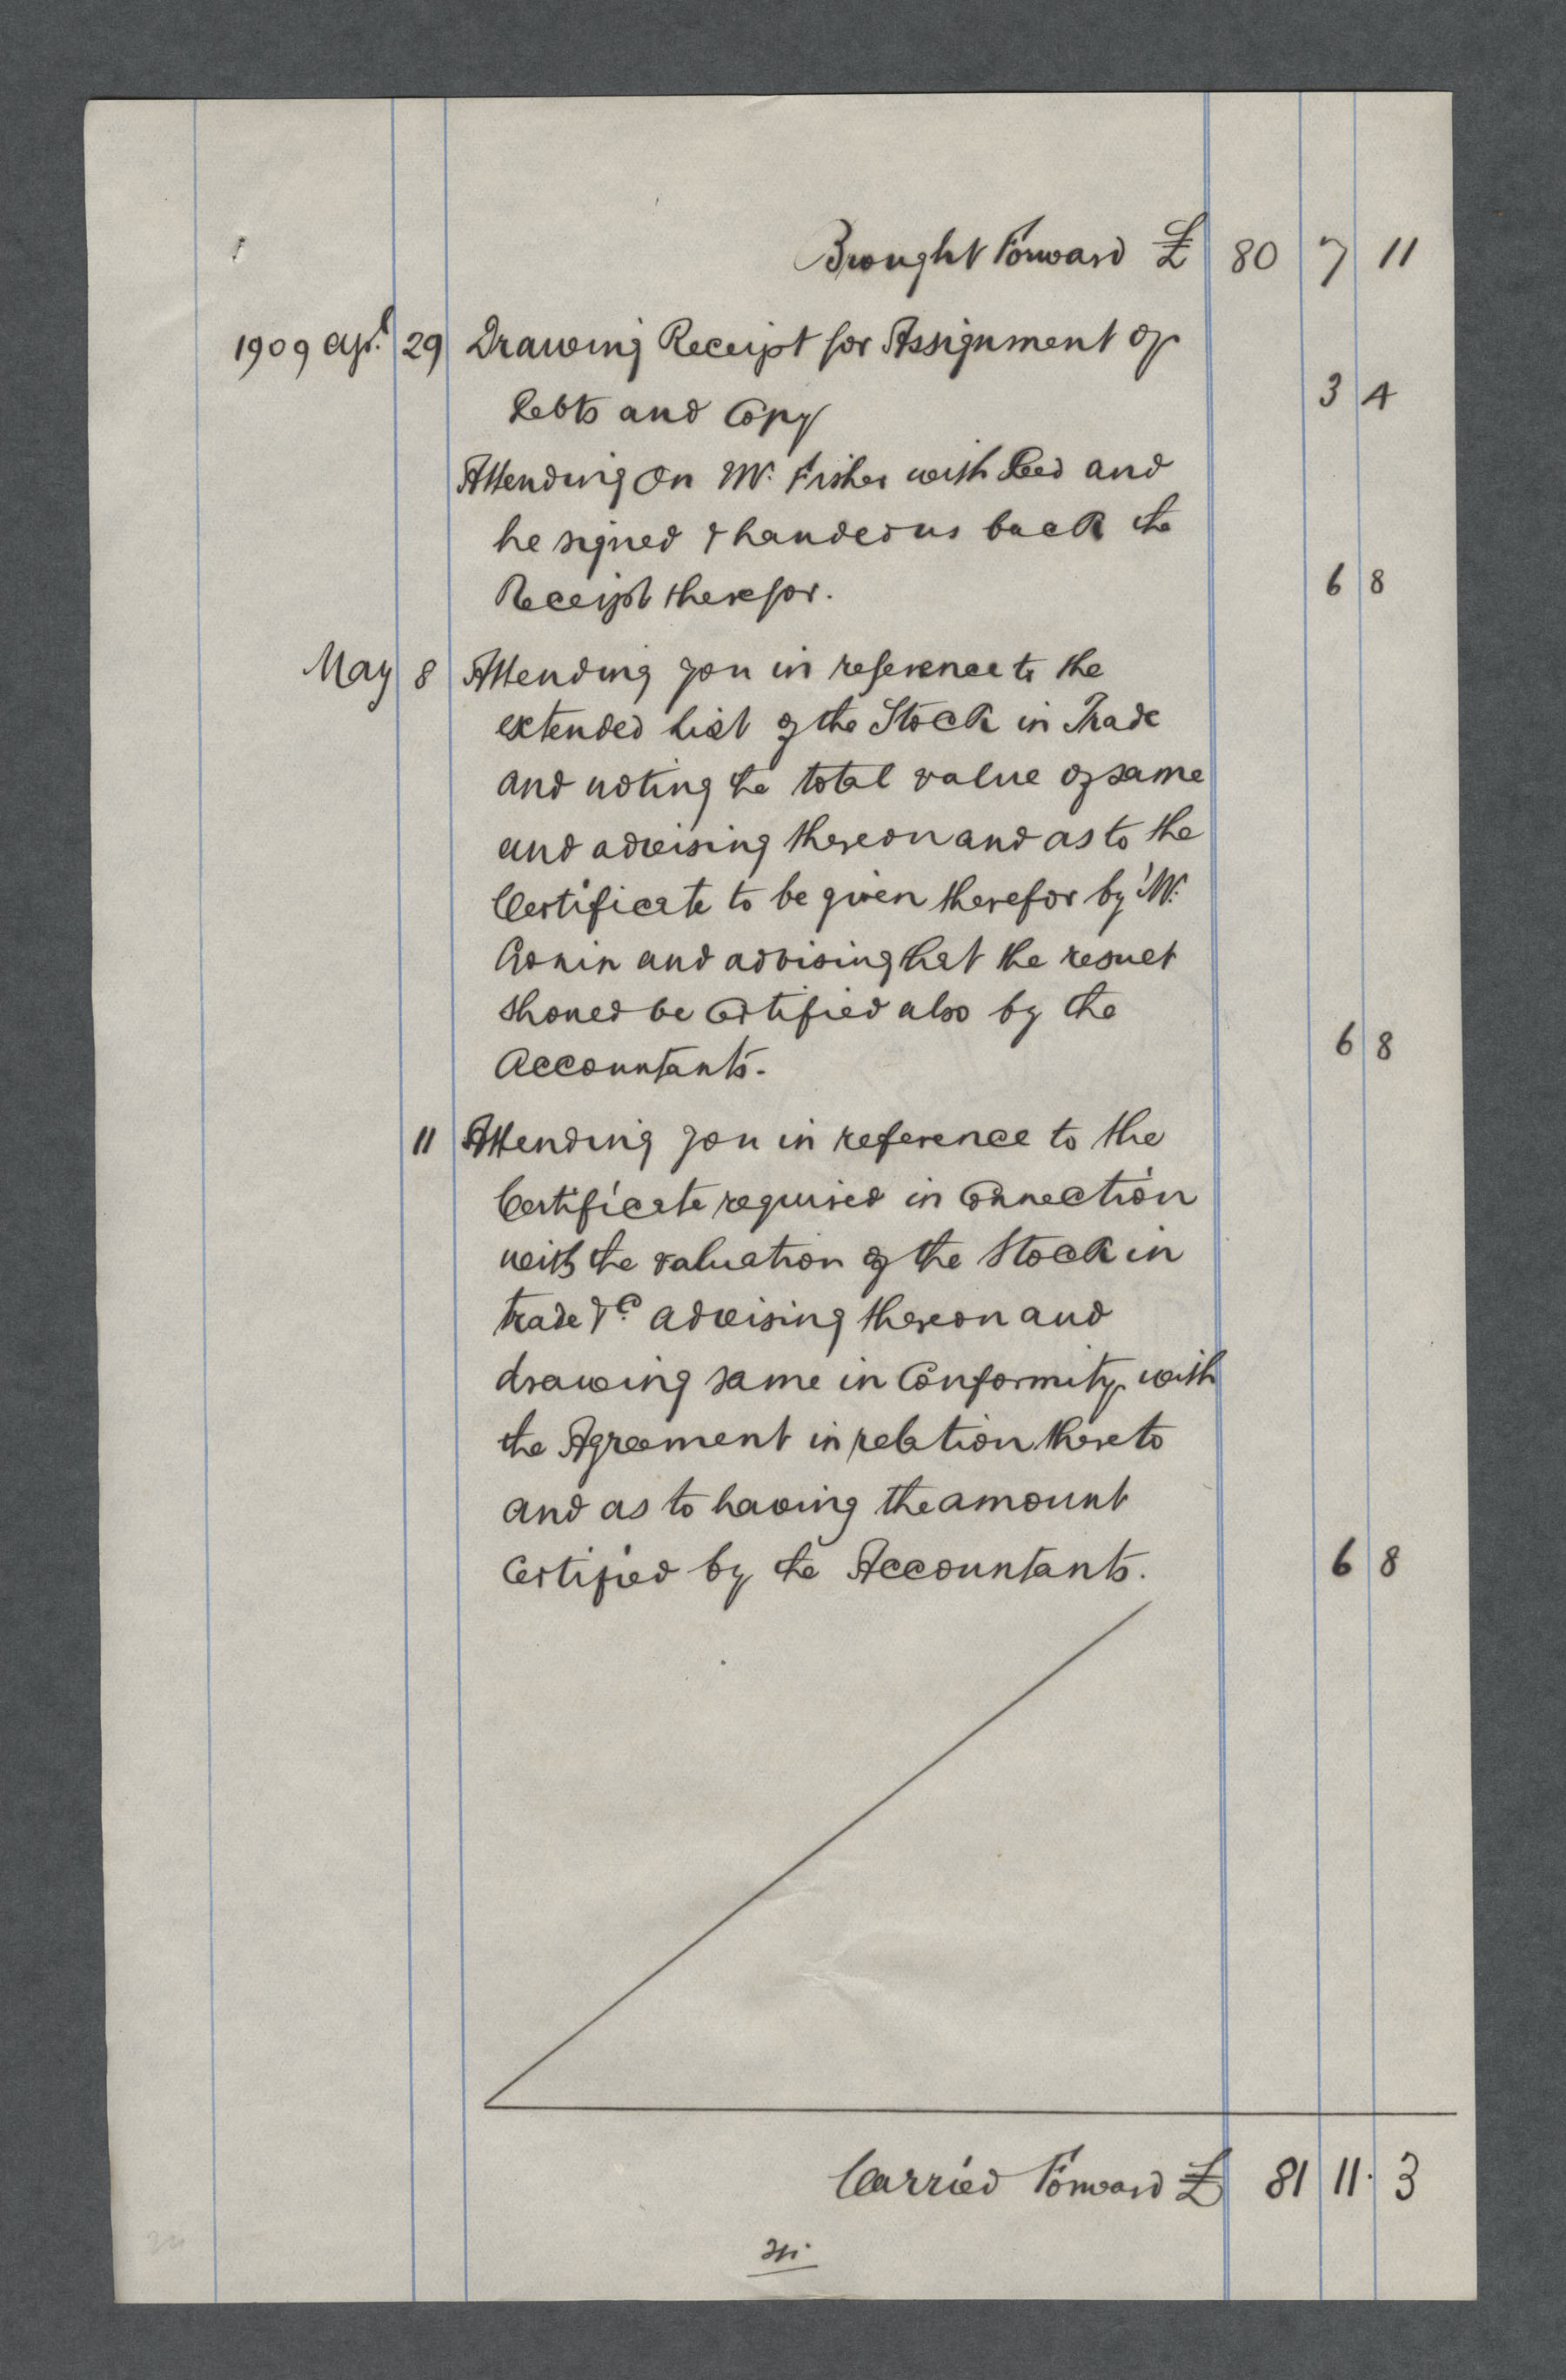 Brought Forward £ 80 7 11
1909 Apl. 29 Drawing Receipt for Assignment of
Debts and Copy 3 4
Attending on Mr. Fisher with Deed and
he signed & handed us back the
Receipt therefor. 6 8
May 8 Attending you in reference to the
extended list of the Stock in Trade
and noting the total value of same
and advising thereon and as to the
Certificate to be given therefor by Mr.
and advising that the result
should be Certified also by the
Accountants. 6 8
11 Attending you in reference to the
Certificate required in Connection
with the valuation of the Stock in
trade &c advising thereon and
drawing same in Conformity with
the Agreement in relation thereto
and as to having the amount
Certified by the Accountants. 6 8
Carried Forward £ 81 11. 3